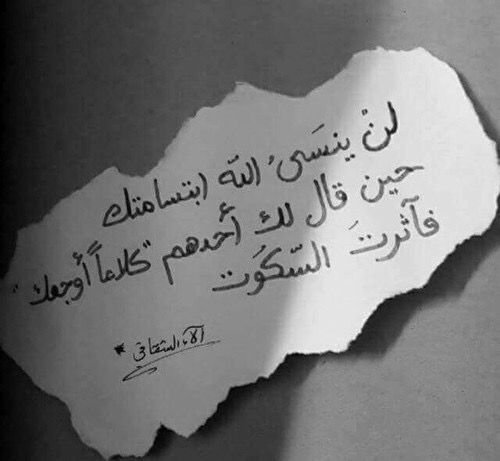 لنْ ينسَىٰ اللّه ابتسامتك
حين قال لك أحدهم "كلاماً أوجعك"
فآثرتَ السّكُوت
آلاء الشقاقي *